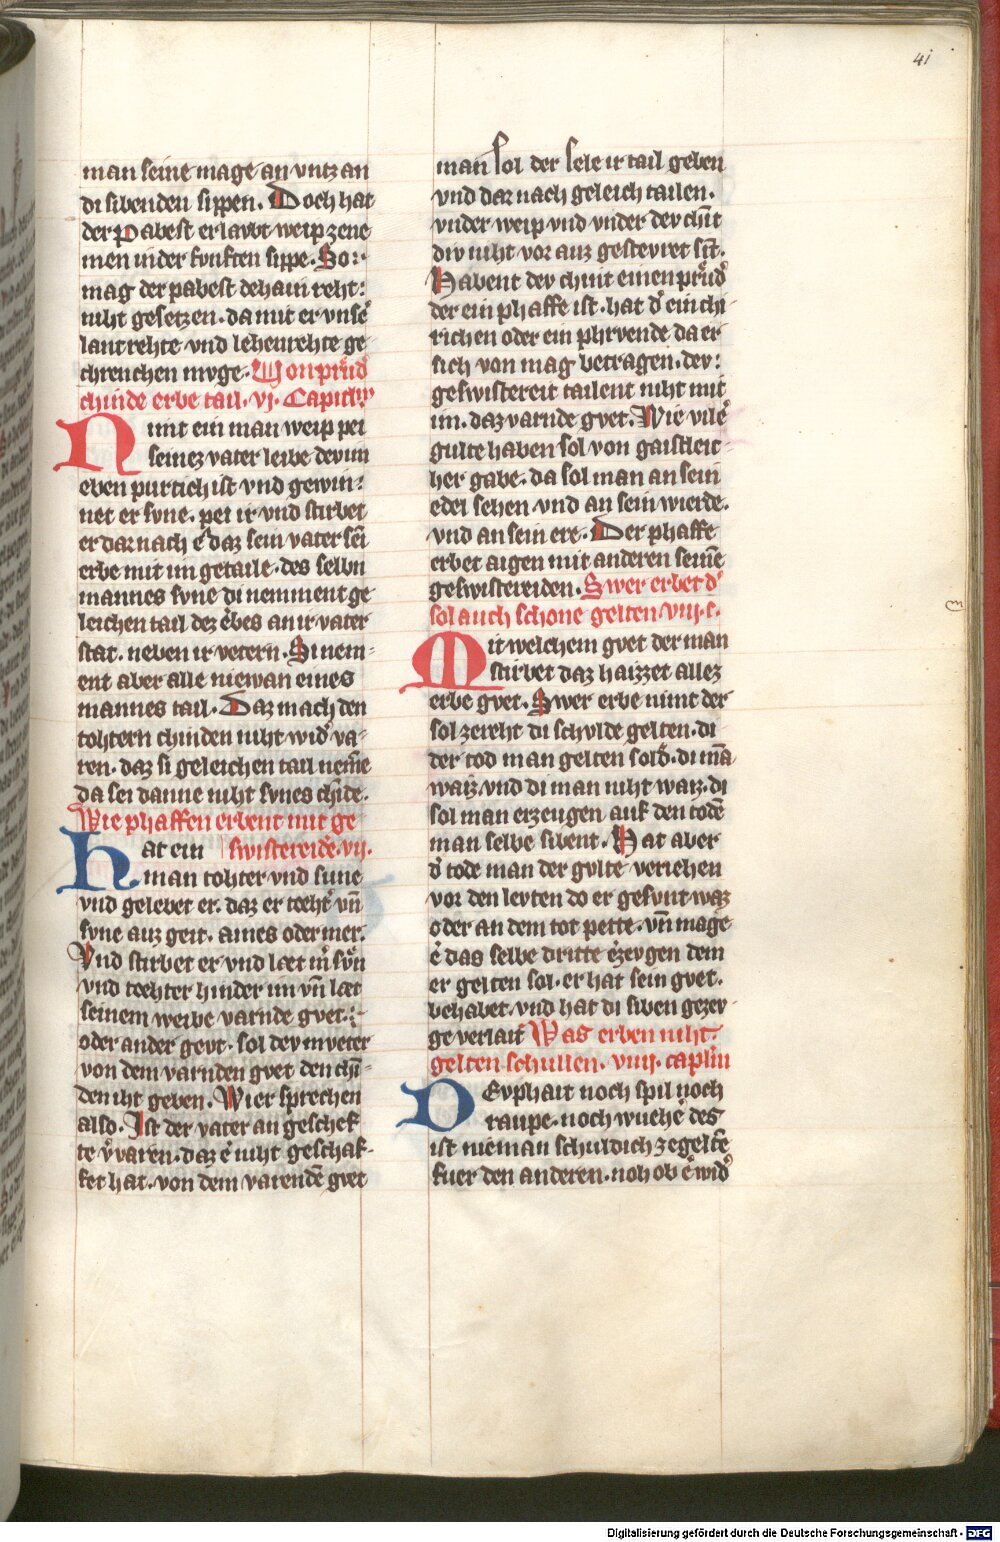 41
man seine mage an vntz an
di sibenden sippen. Doch hat
der Pabest erlavbt weip zene
men inder fvnften sippe. So:
mag der pabest dehain reht:
niht gesetzen. da mit er vnser̾
lantrehte vnd lehenrehte ge
chrenchen mvge. Von prud̾
chinde erbe tail. vj. Capitlum
Nimt ein man weip pei
seinez vater leibe dev im
eben purtich ist vnd gewin:
net er svne. pei ir vnd stirbet
er dar nach e daz sein vater sei
erbe mit im getaile. des selbn
mannes svne di nemment ge
leichen tail dez erbes an ir vater
stat. neben ir vetern. Si nem-
ent aber alle niewan eines
mannes tail. Daz mach den
tohtern chinden niht wid̾ va-
ren. daz si geleichen tail neme̅
da sei danne niht svnes chi̅de.
Wie phaffen erbent mit ge
swistereide̅. vij.
Hat ein
man tohter vnd sune
vnd gelebet er. daz er toeht̾ vn̅
svne auz geit. aines oder mer.
Vnd stirbet er vnd laet im̾ sv̅n
vnd toehter hinder im vn̅ laet
seinem weibe varnde gvet:
oder ander gevt. sol dev mveter
von dem varnden gvet den chi̅-
den iht geben. Wier sprechen
also. Ist der vater an geschef
te v̾varen. daz e̾ niht geschaf-
fet hat. von dem varende̅ gvet
man sol der sele ir tail geben
vnd dar nach geleich tailen.
vnder weip vnd vnder dev chi̅t
div niht vor auz gestevret si̅t.
Habent dev chint einen prud̾
der ein phaffe ist. hat d̾ ein chi-
richen oder ein phrvende da er
sich von mag betragen. dev:
geswistereit tailent niht mit
im. daz varnde gvet. Wie vil e̾
gulte haben sol von gaistleit-
her gabe. da sol man an sein
edel sehen. vnd an sein wierde.
vnd an sein ere. Der phaffe
erbet aigen mit anderen seine̅
geswistereiden. Swer erbet d̾
sol auch schone gelten. viij. c.
Mit welchem gvet der man
stirbet daz haizzet allez
erbe gvet. Swer erbe nimt der
sol ze reht di schvlde gelten. di
der tod man gelten sold̾. di ma̅
waiz vnd di man niht waiz. di
sol man erzeugen auf den tode̅
man selbe sibent. Hat aber
d̾ tode man der gvlte veriehen
vor den levten do er gesvnt waz
oder an dem tot pette. vn̅ mage
e̾ das selbe dritte e̾zevgen dem
er gelten sol. er hat sein gvet.
behabet. vnd hat di siben gezev-
ge verlait Was erben niht.
gelten schullen. viiij. caplm̅
Devphait noch spil noch
raupe. noch wuche̾ des
ist nieman schuldich ze gelte̅
fuer den anderen. noh ob e̾ wid̾
Digitalisierung gefördert durch die Deutsche Forschungsgemeinschaft - DFG